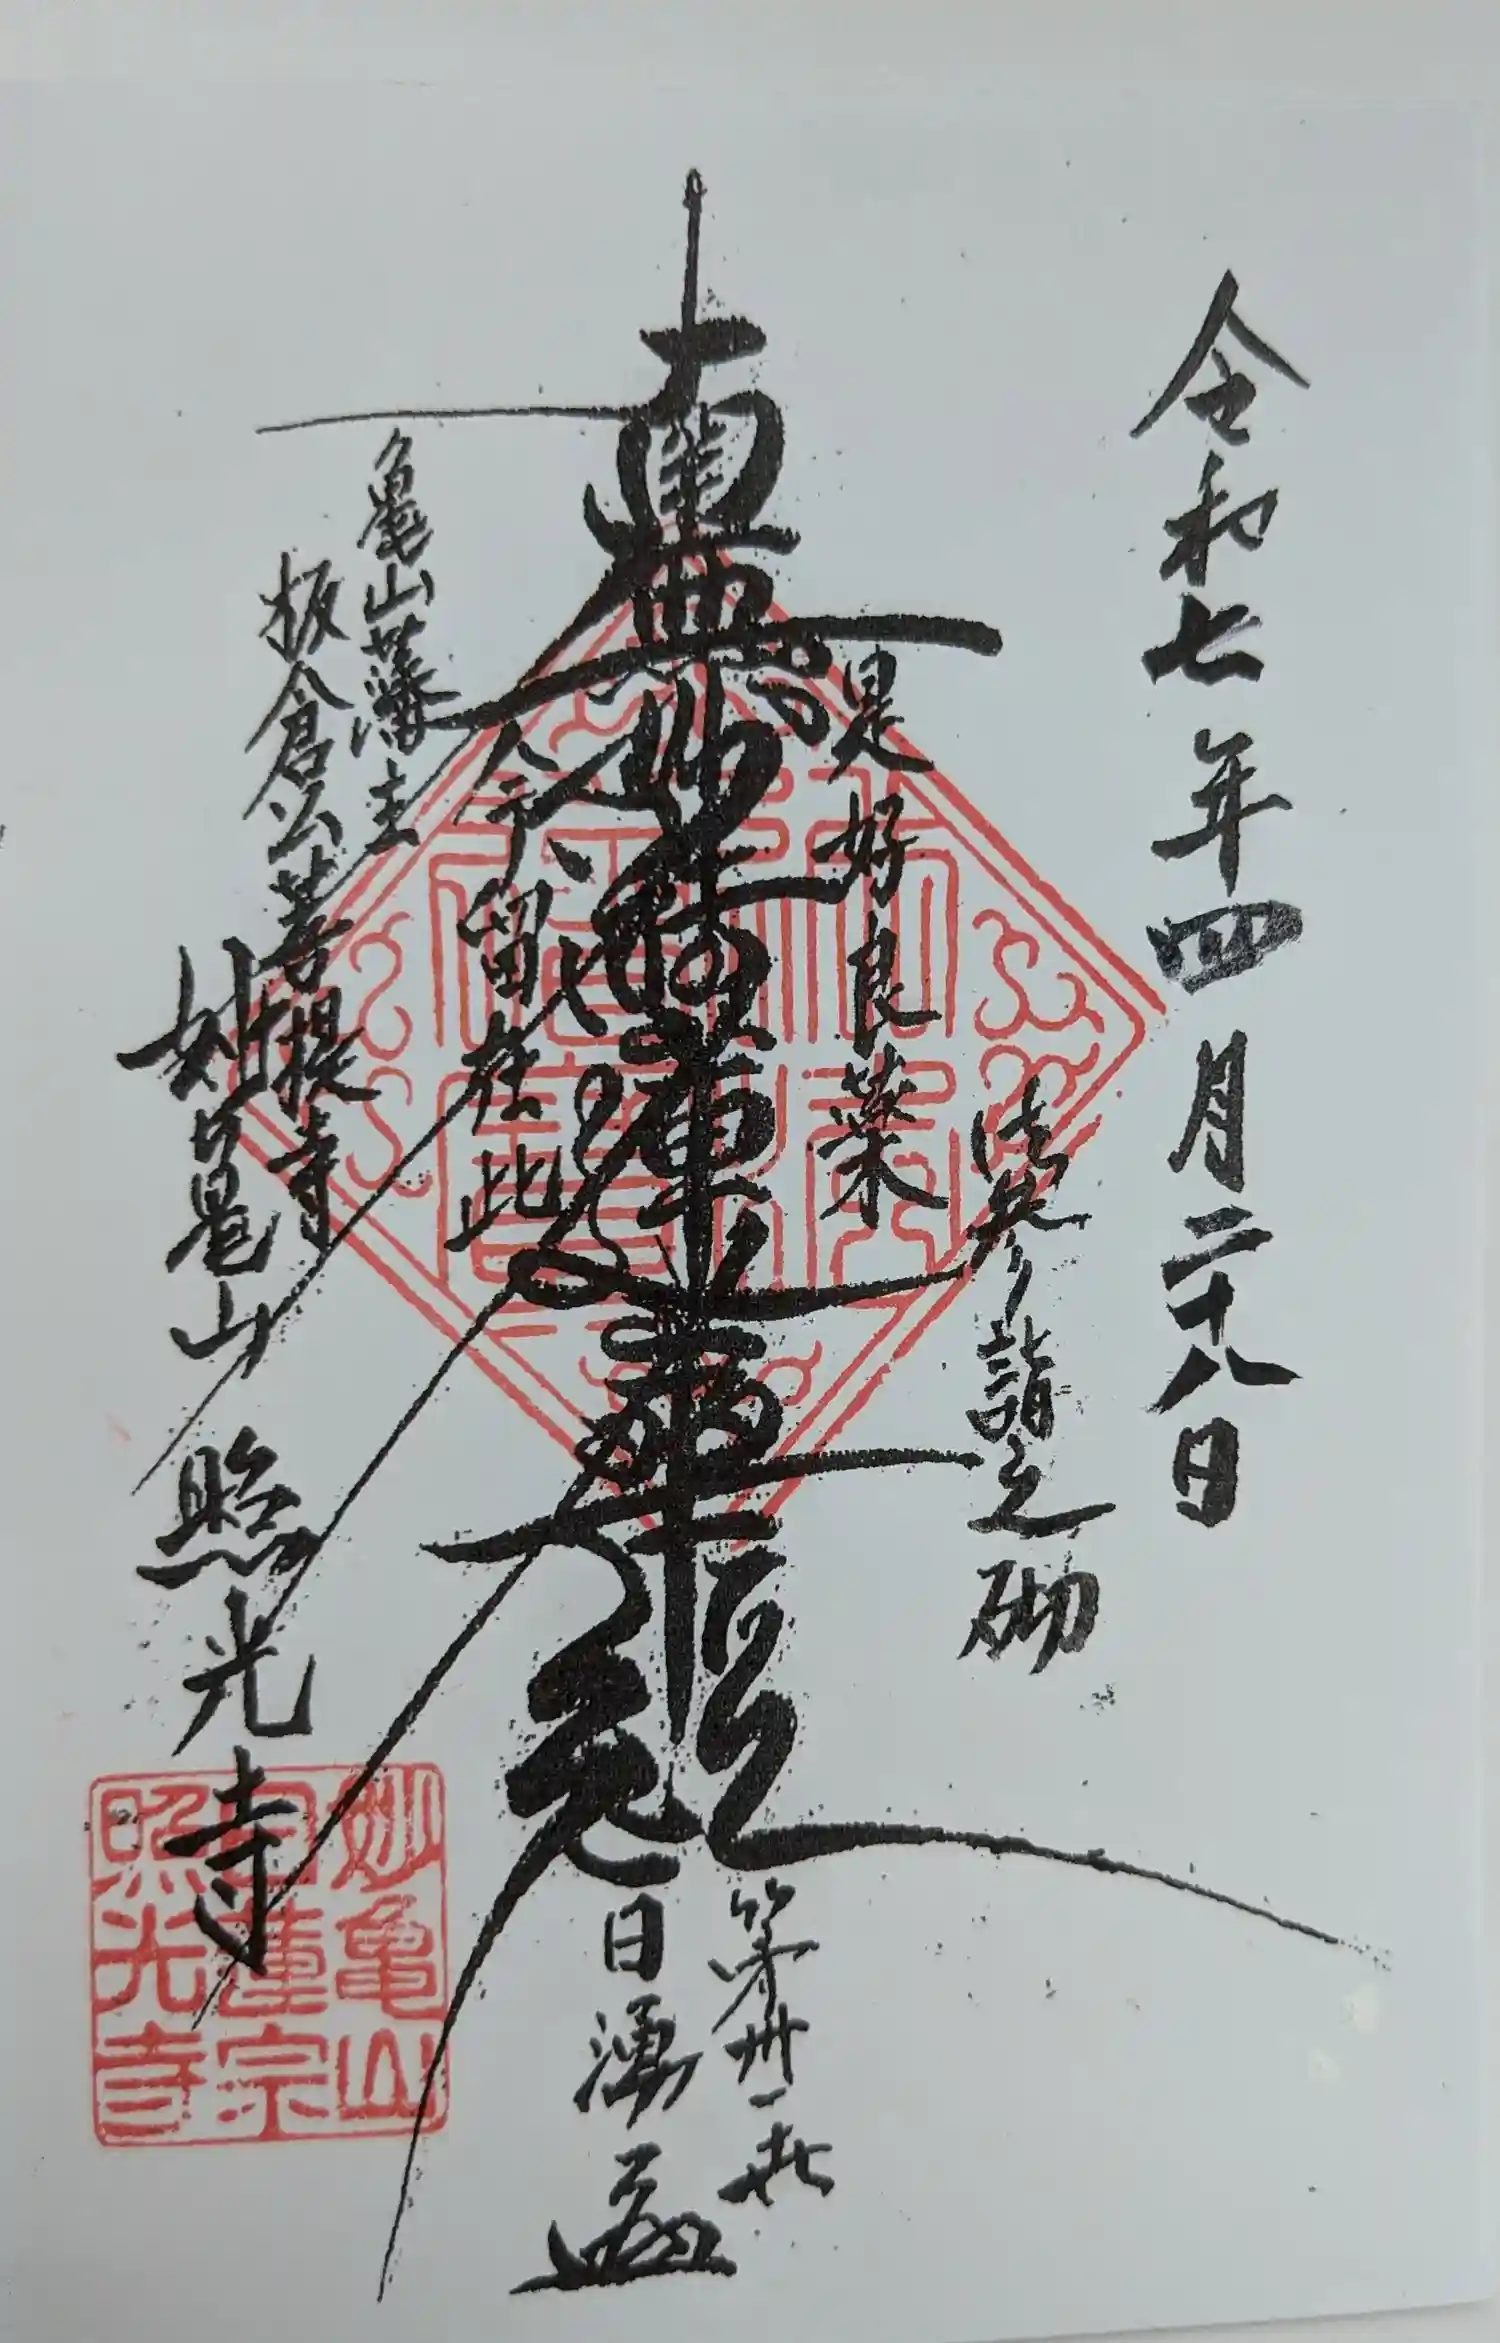 令和七年四月二十八日
法英参詣之砌
是好良薬
南無妙法蓮華経
今留在此
第卅一世
日湧
亀山藩主
板倉公菩提寺
妙亀山
照光寺
妙亀山
日蓮宗
照光寺